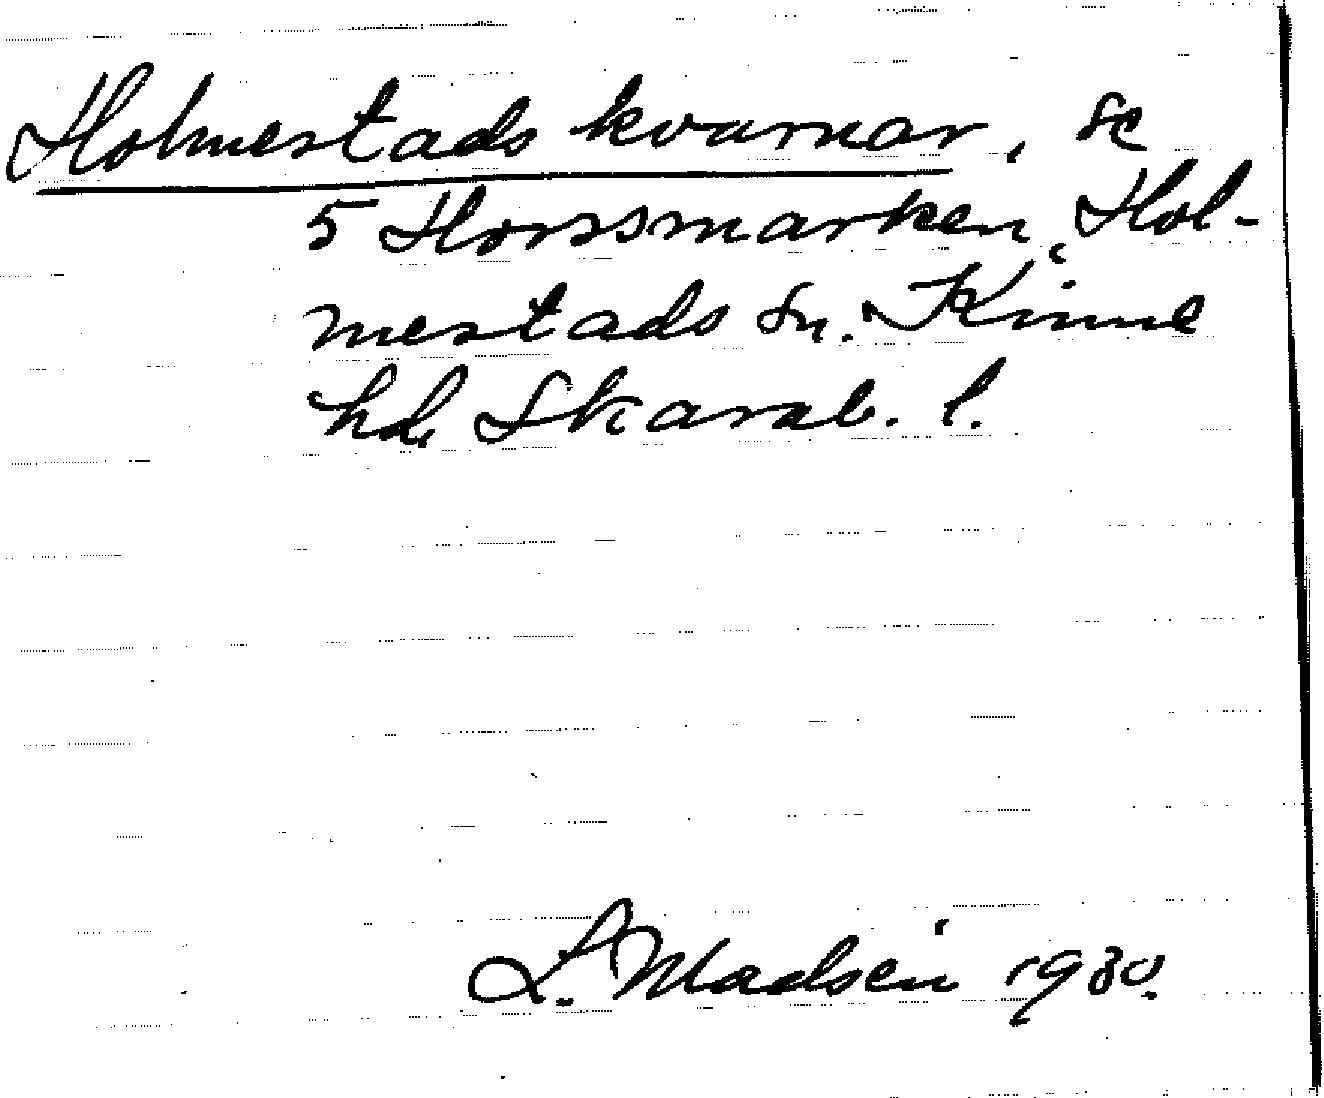 Holmestads kvarnar, se
5 Horssmarken, Hol-
mestads sn. Kinne
hd, Skarab. l.
L. Madsen 1930.